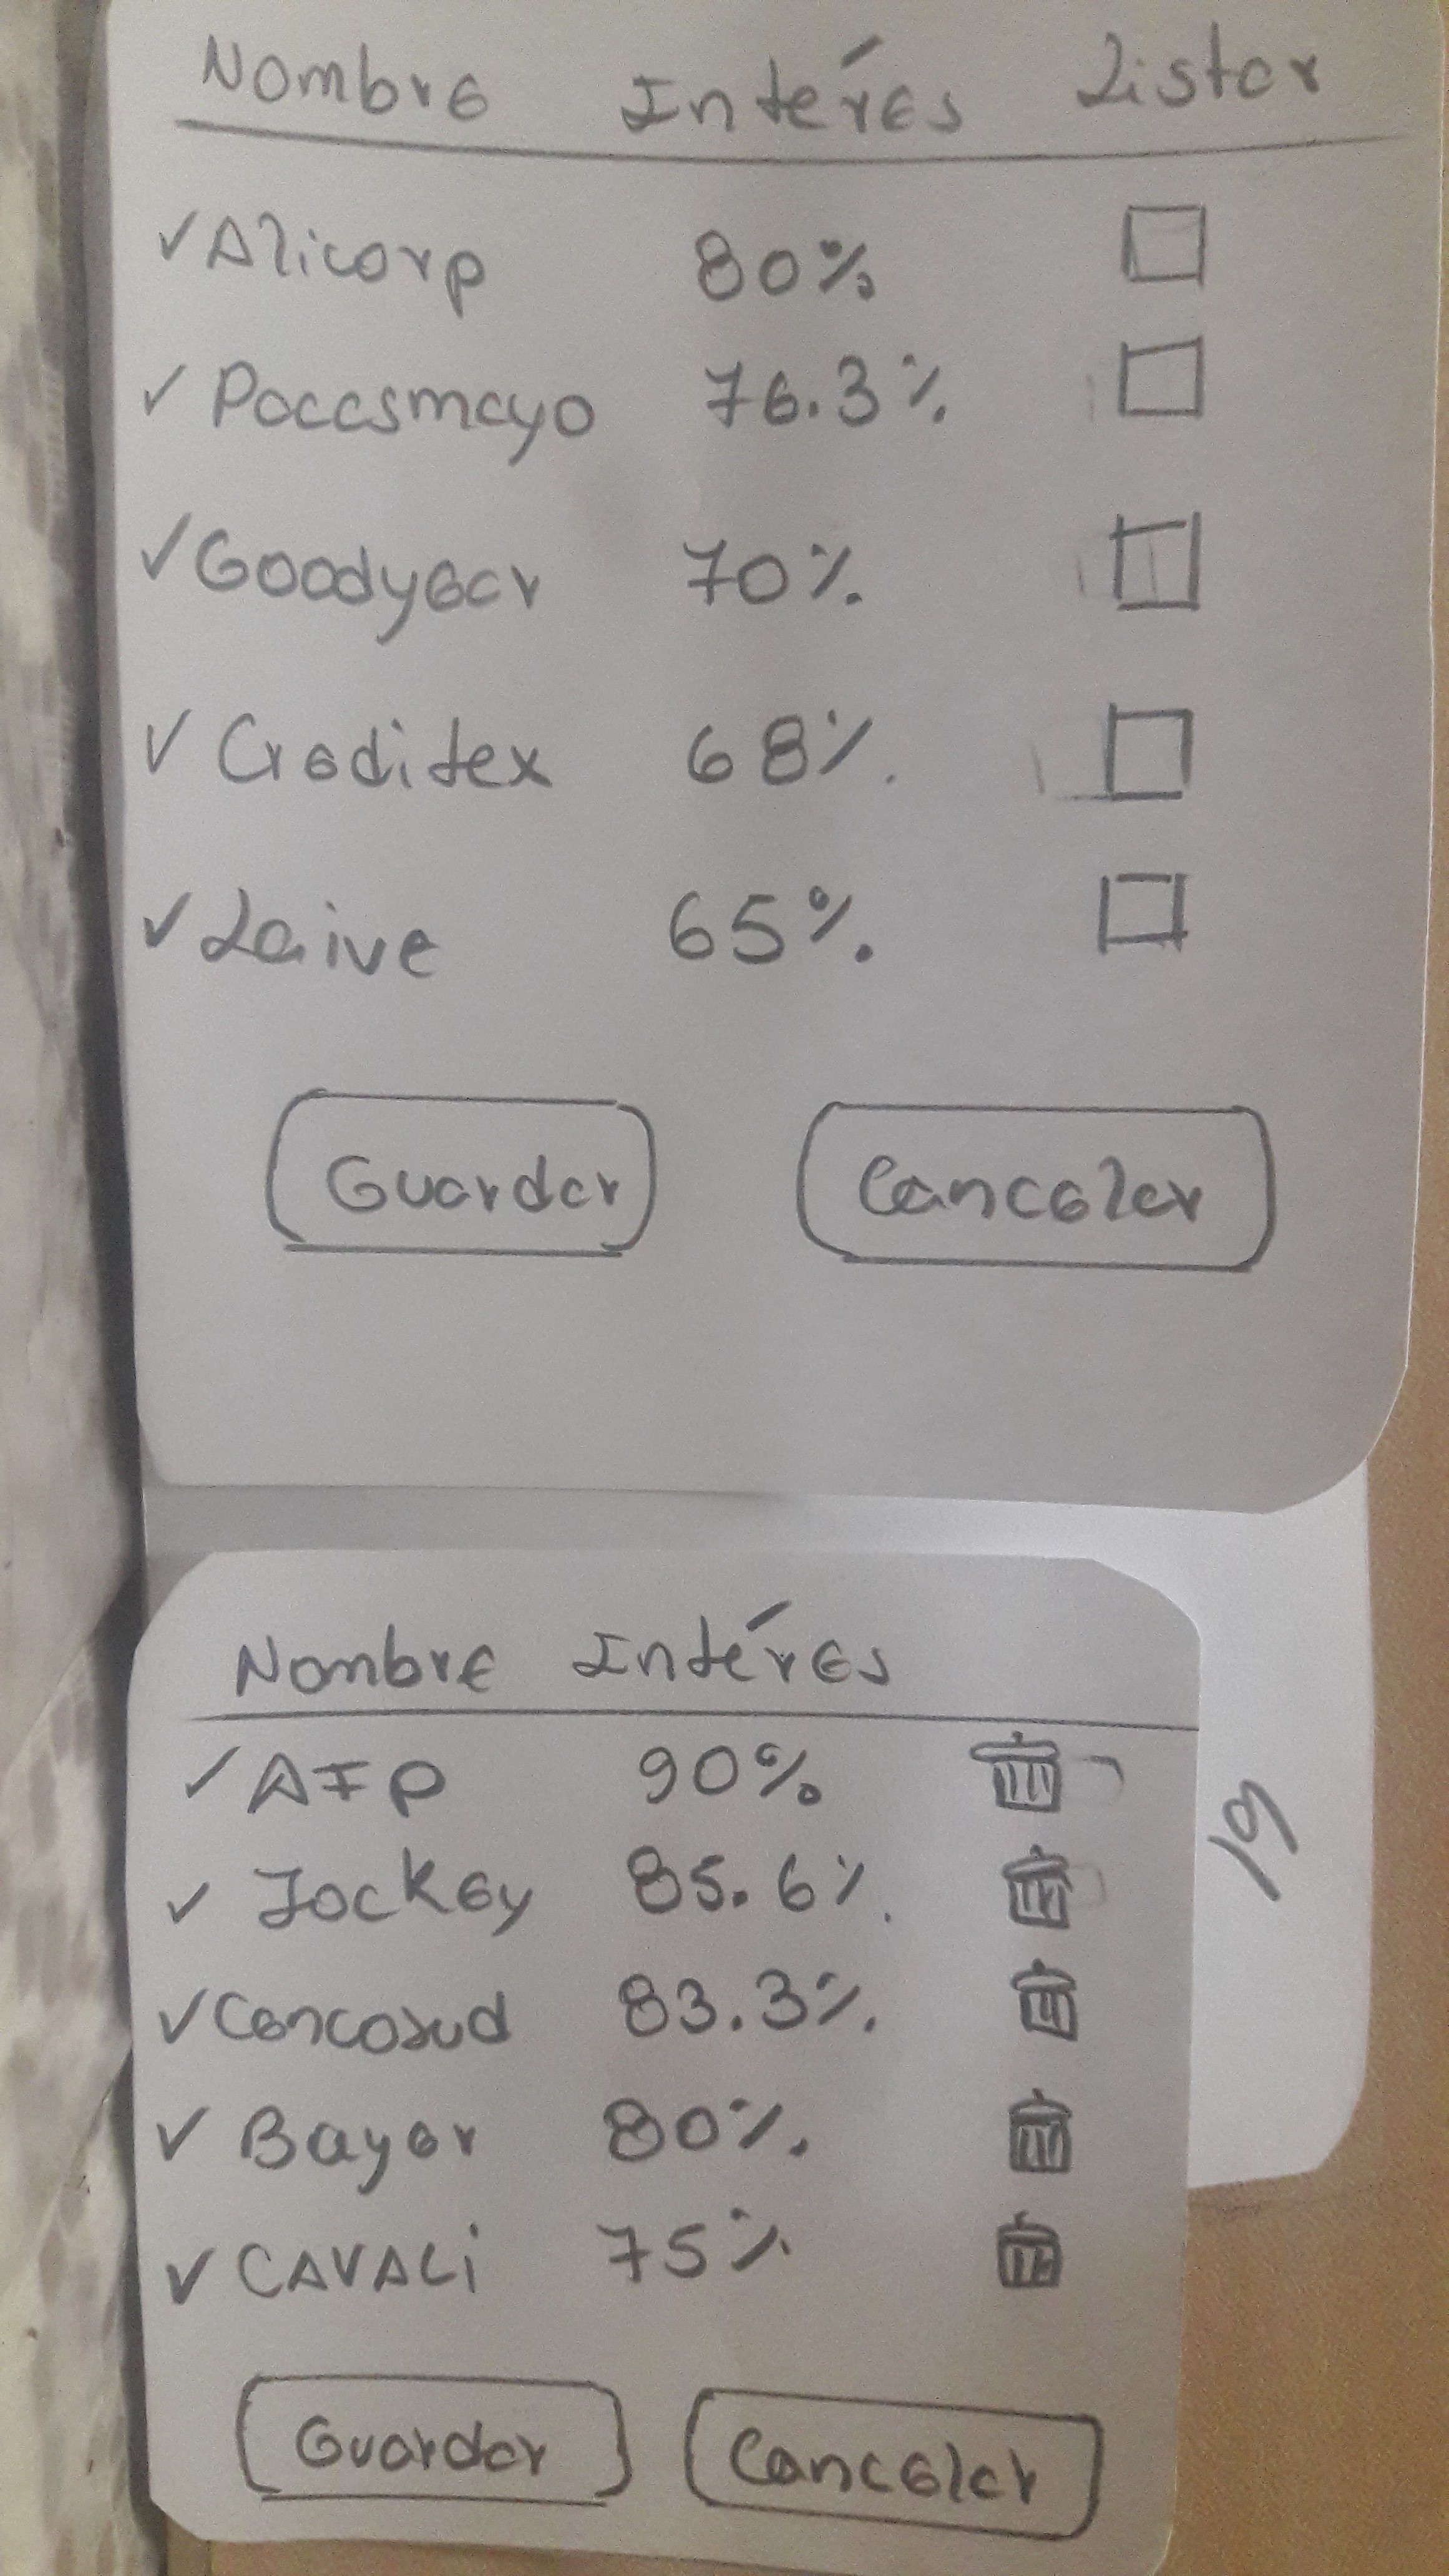 Nombre Intéres Listar
✓ Alicorp 80%
✓ Pacasmayo 76.3%
✓ Goodyear 70%
✓ Creditex 68%
✓ Laive 65%
Guardar Cancelar
Nombre Intéres
✓ AFP 90%
✓ Jockey 85.6%
✓ Cencosud 83.3%
✓ Bayer 80%
✓ CAVALi 75%
Guardar Cancelar
19